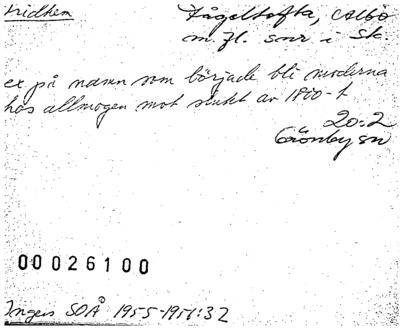 Fridhem
Fågeltofta, Albo
m. fl. snr i Sk.
ex på namn som började bli moderna
hos allmogen mot slutet av 1800-t
20:2
Grönby sn
00026100
Ingers SOÅ 1955-1957:32